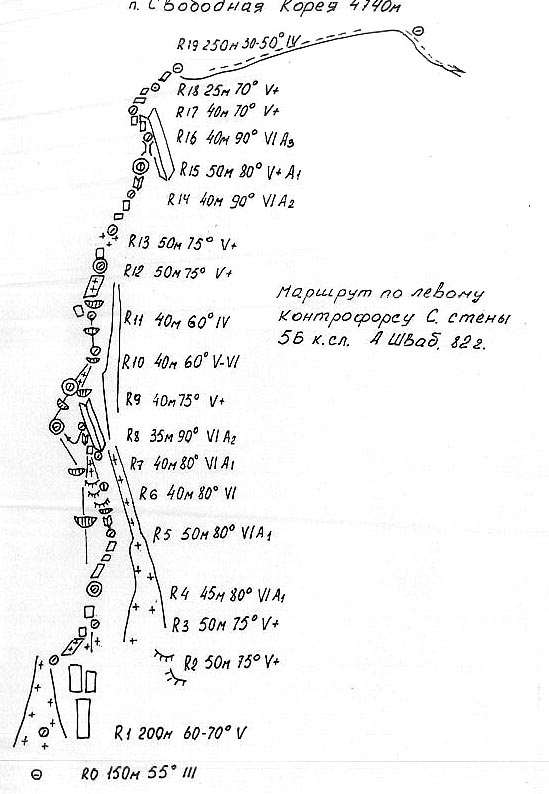 п. Свободная Корея 4740м
R19 250м 30-50° IV
R18 25м 70° V+
R17 40м 70° V+
R16 40м 90° VI A3
R15 50м 80° V+ A1
R14 40м 90° VI A2
R13 50м 75° V+
R12 50м 75° V+
Маршрут по левому
контрофорсу С. стены
5Б к.сл. А Шваб, 82г.
R11 40м 60° IV
R10 40м 60° V-VI
R9 40м 75° V+
R8 35м 90° VI A2
R7 40м 80° VI A1
R6 40м 80° VI
R5 50м 80° VI A1
R4 45м 80° VI A1
R3 50м 75° V+
R2 50м 75° V+
R1 200м 60-70° V
R0 150м 55° III